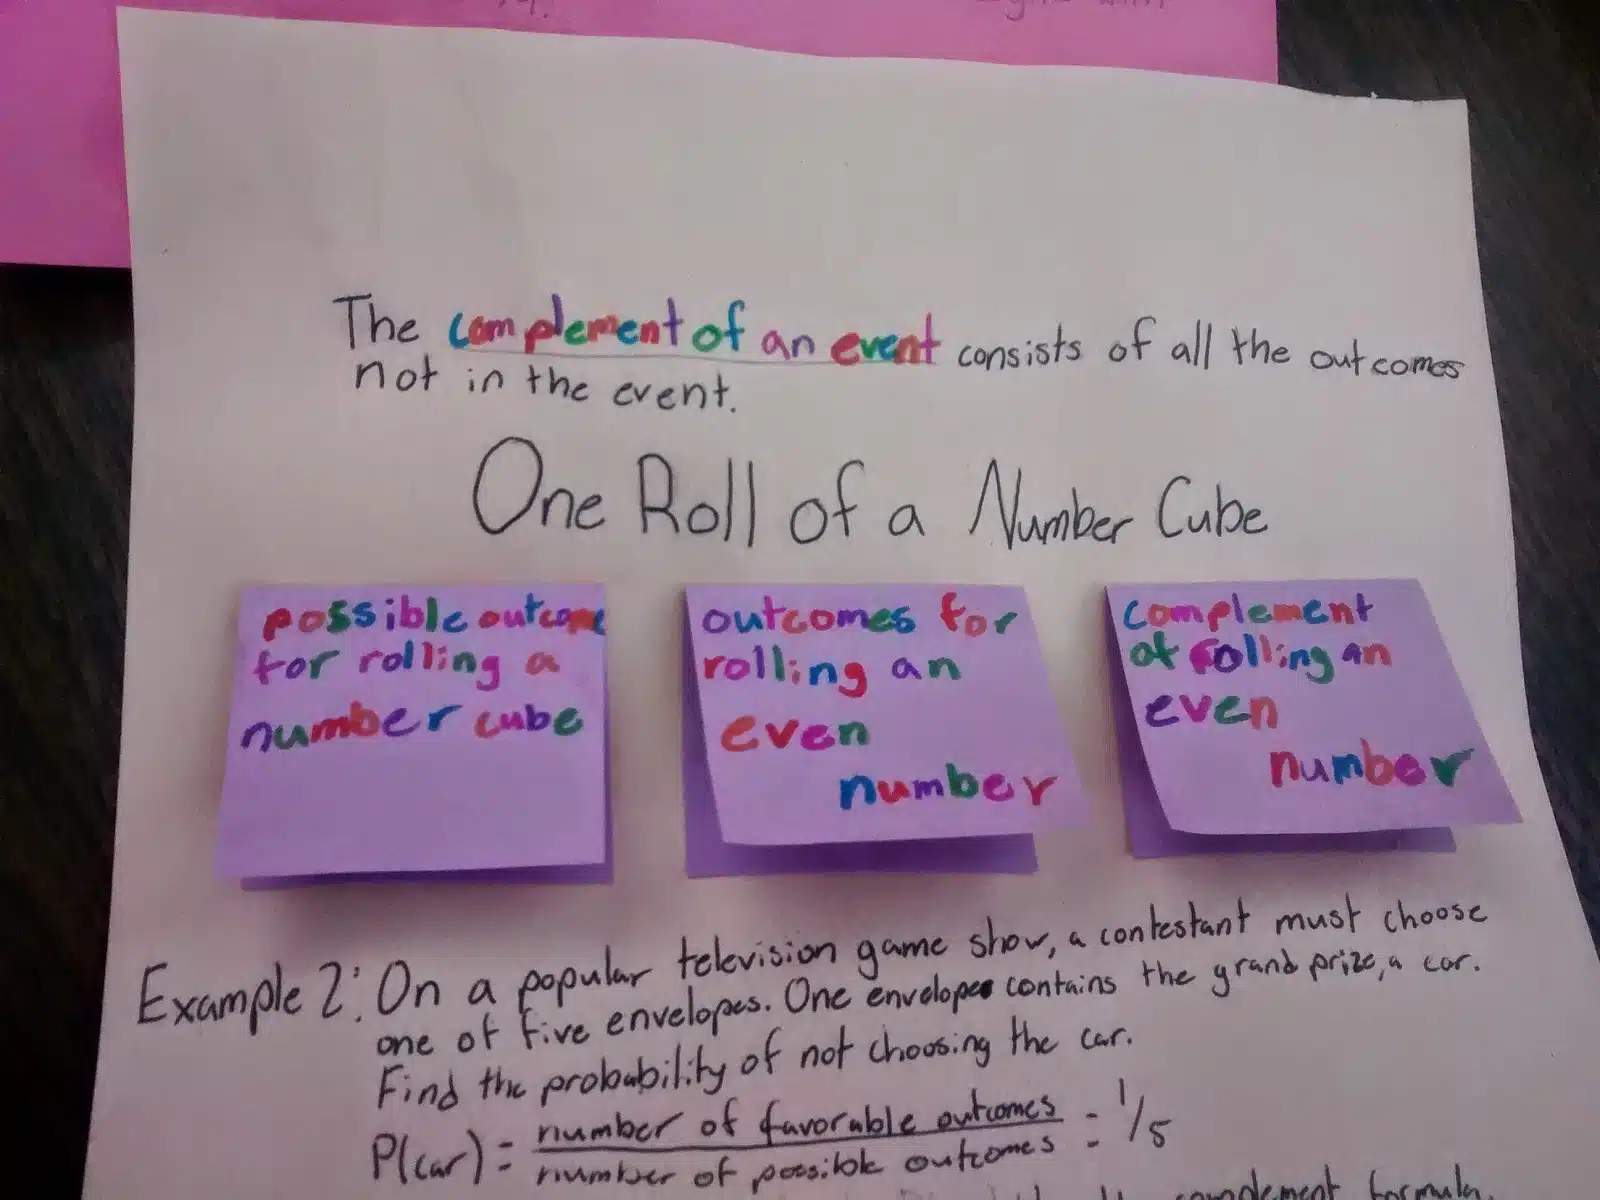 The complement of an event consists of all the outcomes
not in the event.
One Roll of a Number Cube
possible outcome
for rolling a
number cube
outcomes for
rolling an
even
number
complement
of rolling an
even
number
Example 2: On a popular television game show, a contestant must choose
one of five envelopes. One envelope contains the grand prize, a car.
Find the probability of not choosing the car.
P(car) = number of favorable outcomes = 1/5
number of possible outcomes
complement formula.